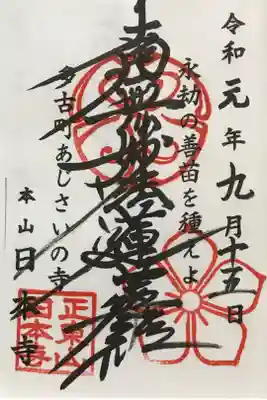 令和元年九月十五日
永劫の善苗を種えよ
南無妙法蓮華経
多古町あじさいの寺
本山 日本寺
正東山
日本寺